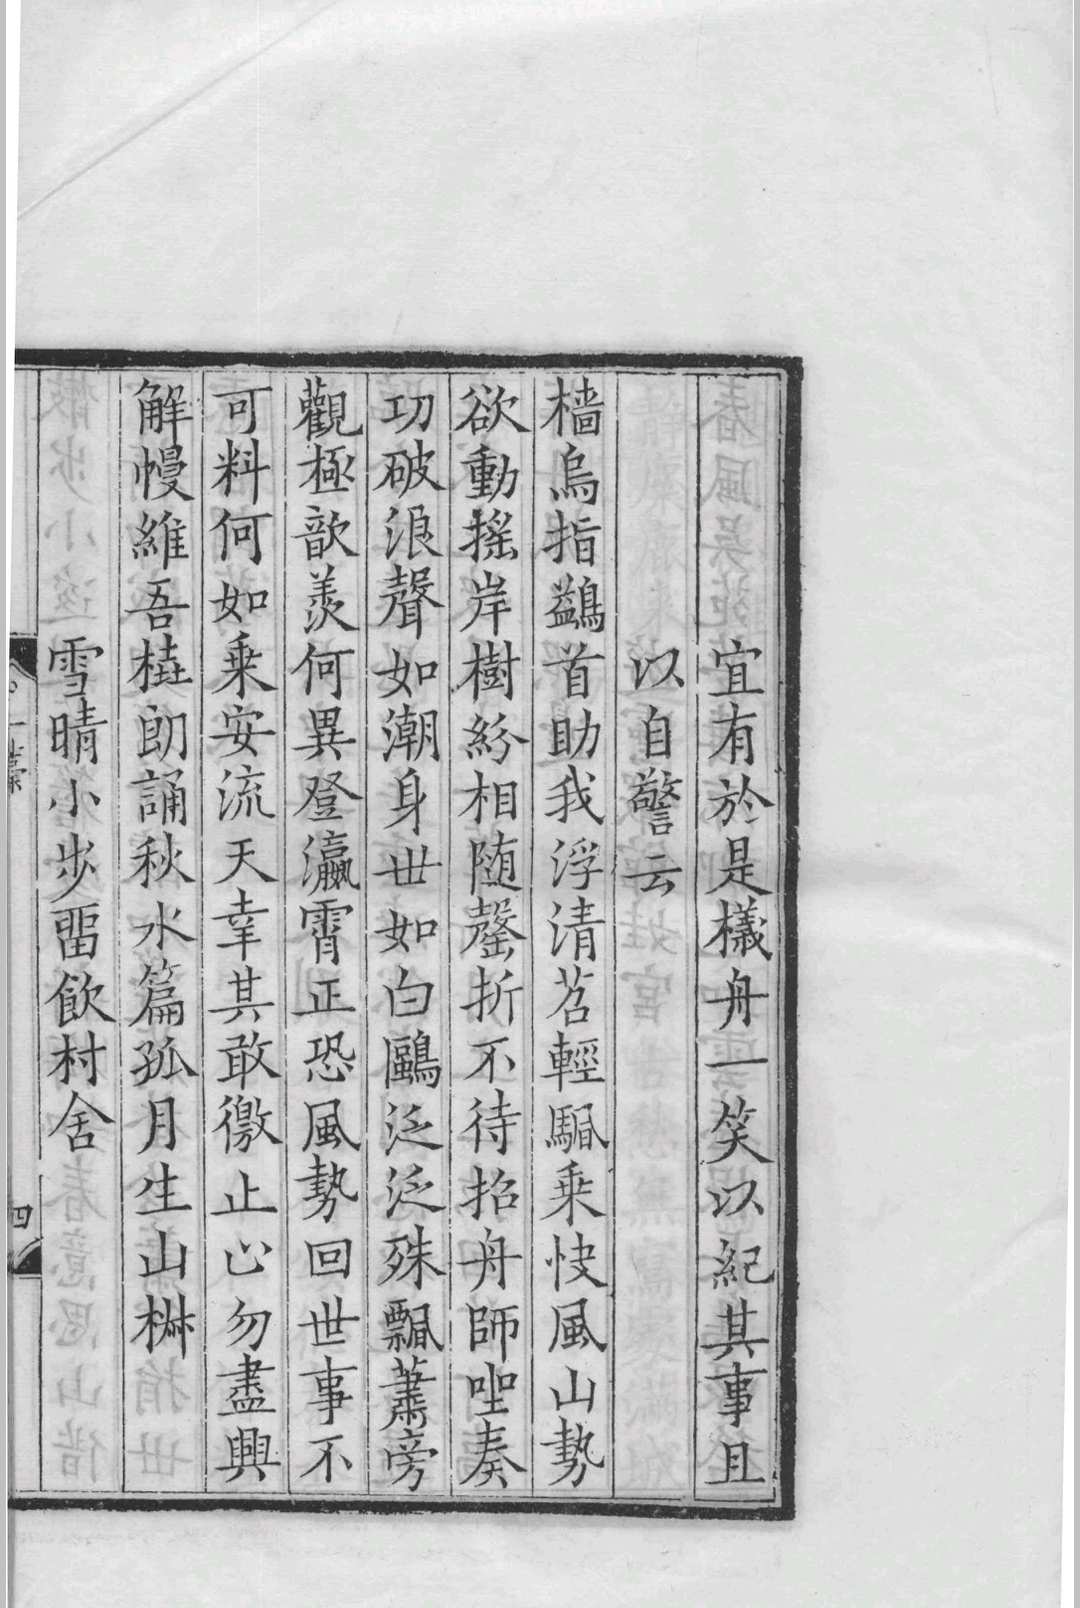 宜有於是檥舟一笑以紀其事且
以自警云
檣烏指鷁首助我浮清苕輕颿乗快風山勢
欲動搖岸樹紛相随罄折不待招舟師唑奏
功破浪聲如潮身世如白鷗泛泛殊飄蕭旁
觀極歆羡何異登瀛霄正恐風勢回世事不
可料何如乗安流天幸其敢徼止心勿盡興
解幔維吾橈朗誦秋水篇孤月生山椒
雪晴小步畱飲村舍
四